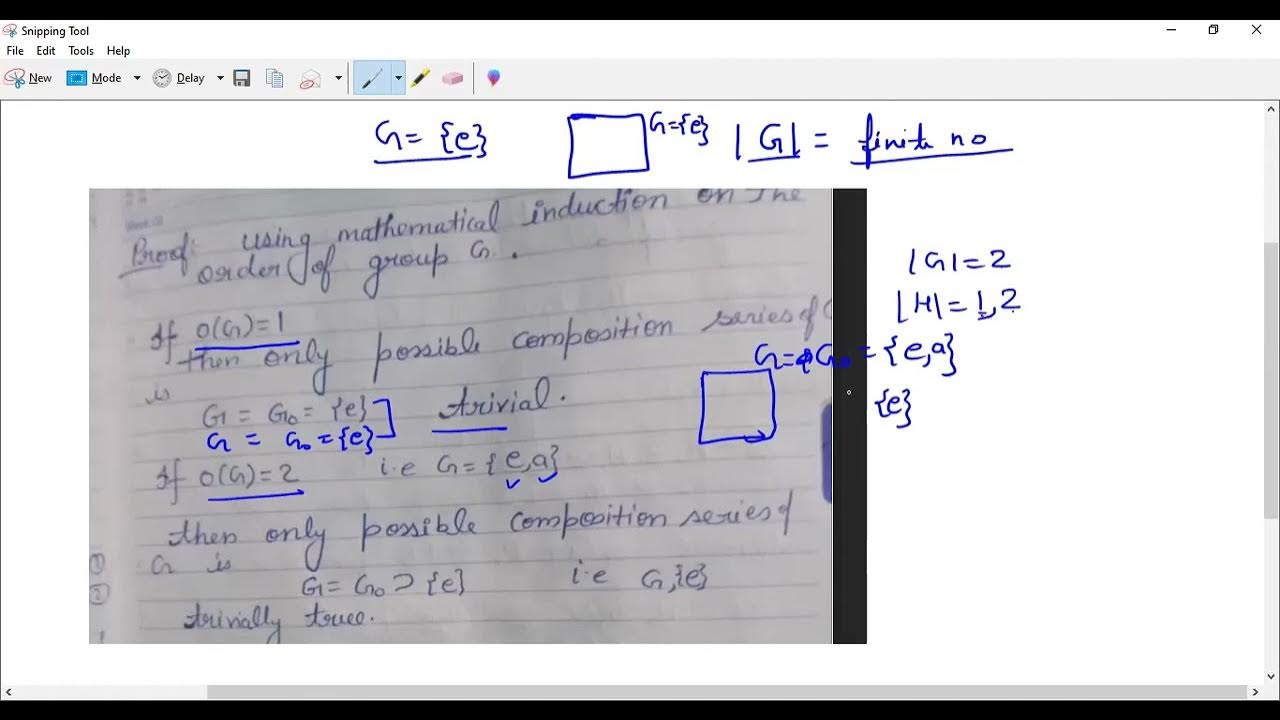 Snipping Tool
File Edit Tools Help
New Mode Delay
G = {e} G={e} |G| = finite no
Proof: using mathematical induction on the
order of group G.
|G|=2
|H|=1,2
If O(G)=1
then only possible composition series of G
is
G=G₀={e,a}
{e}
G = G₀ = {e} trivial.
G = G₀={e}
If O(G)=2 i.e G={e,a}
then only possible composition series of
G is
G = G₀ ⊃ {e} i.e G,{e}
trivially true.